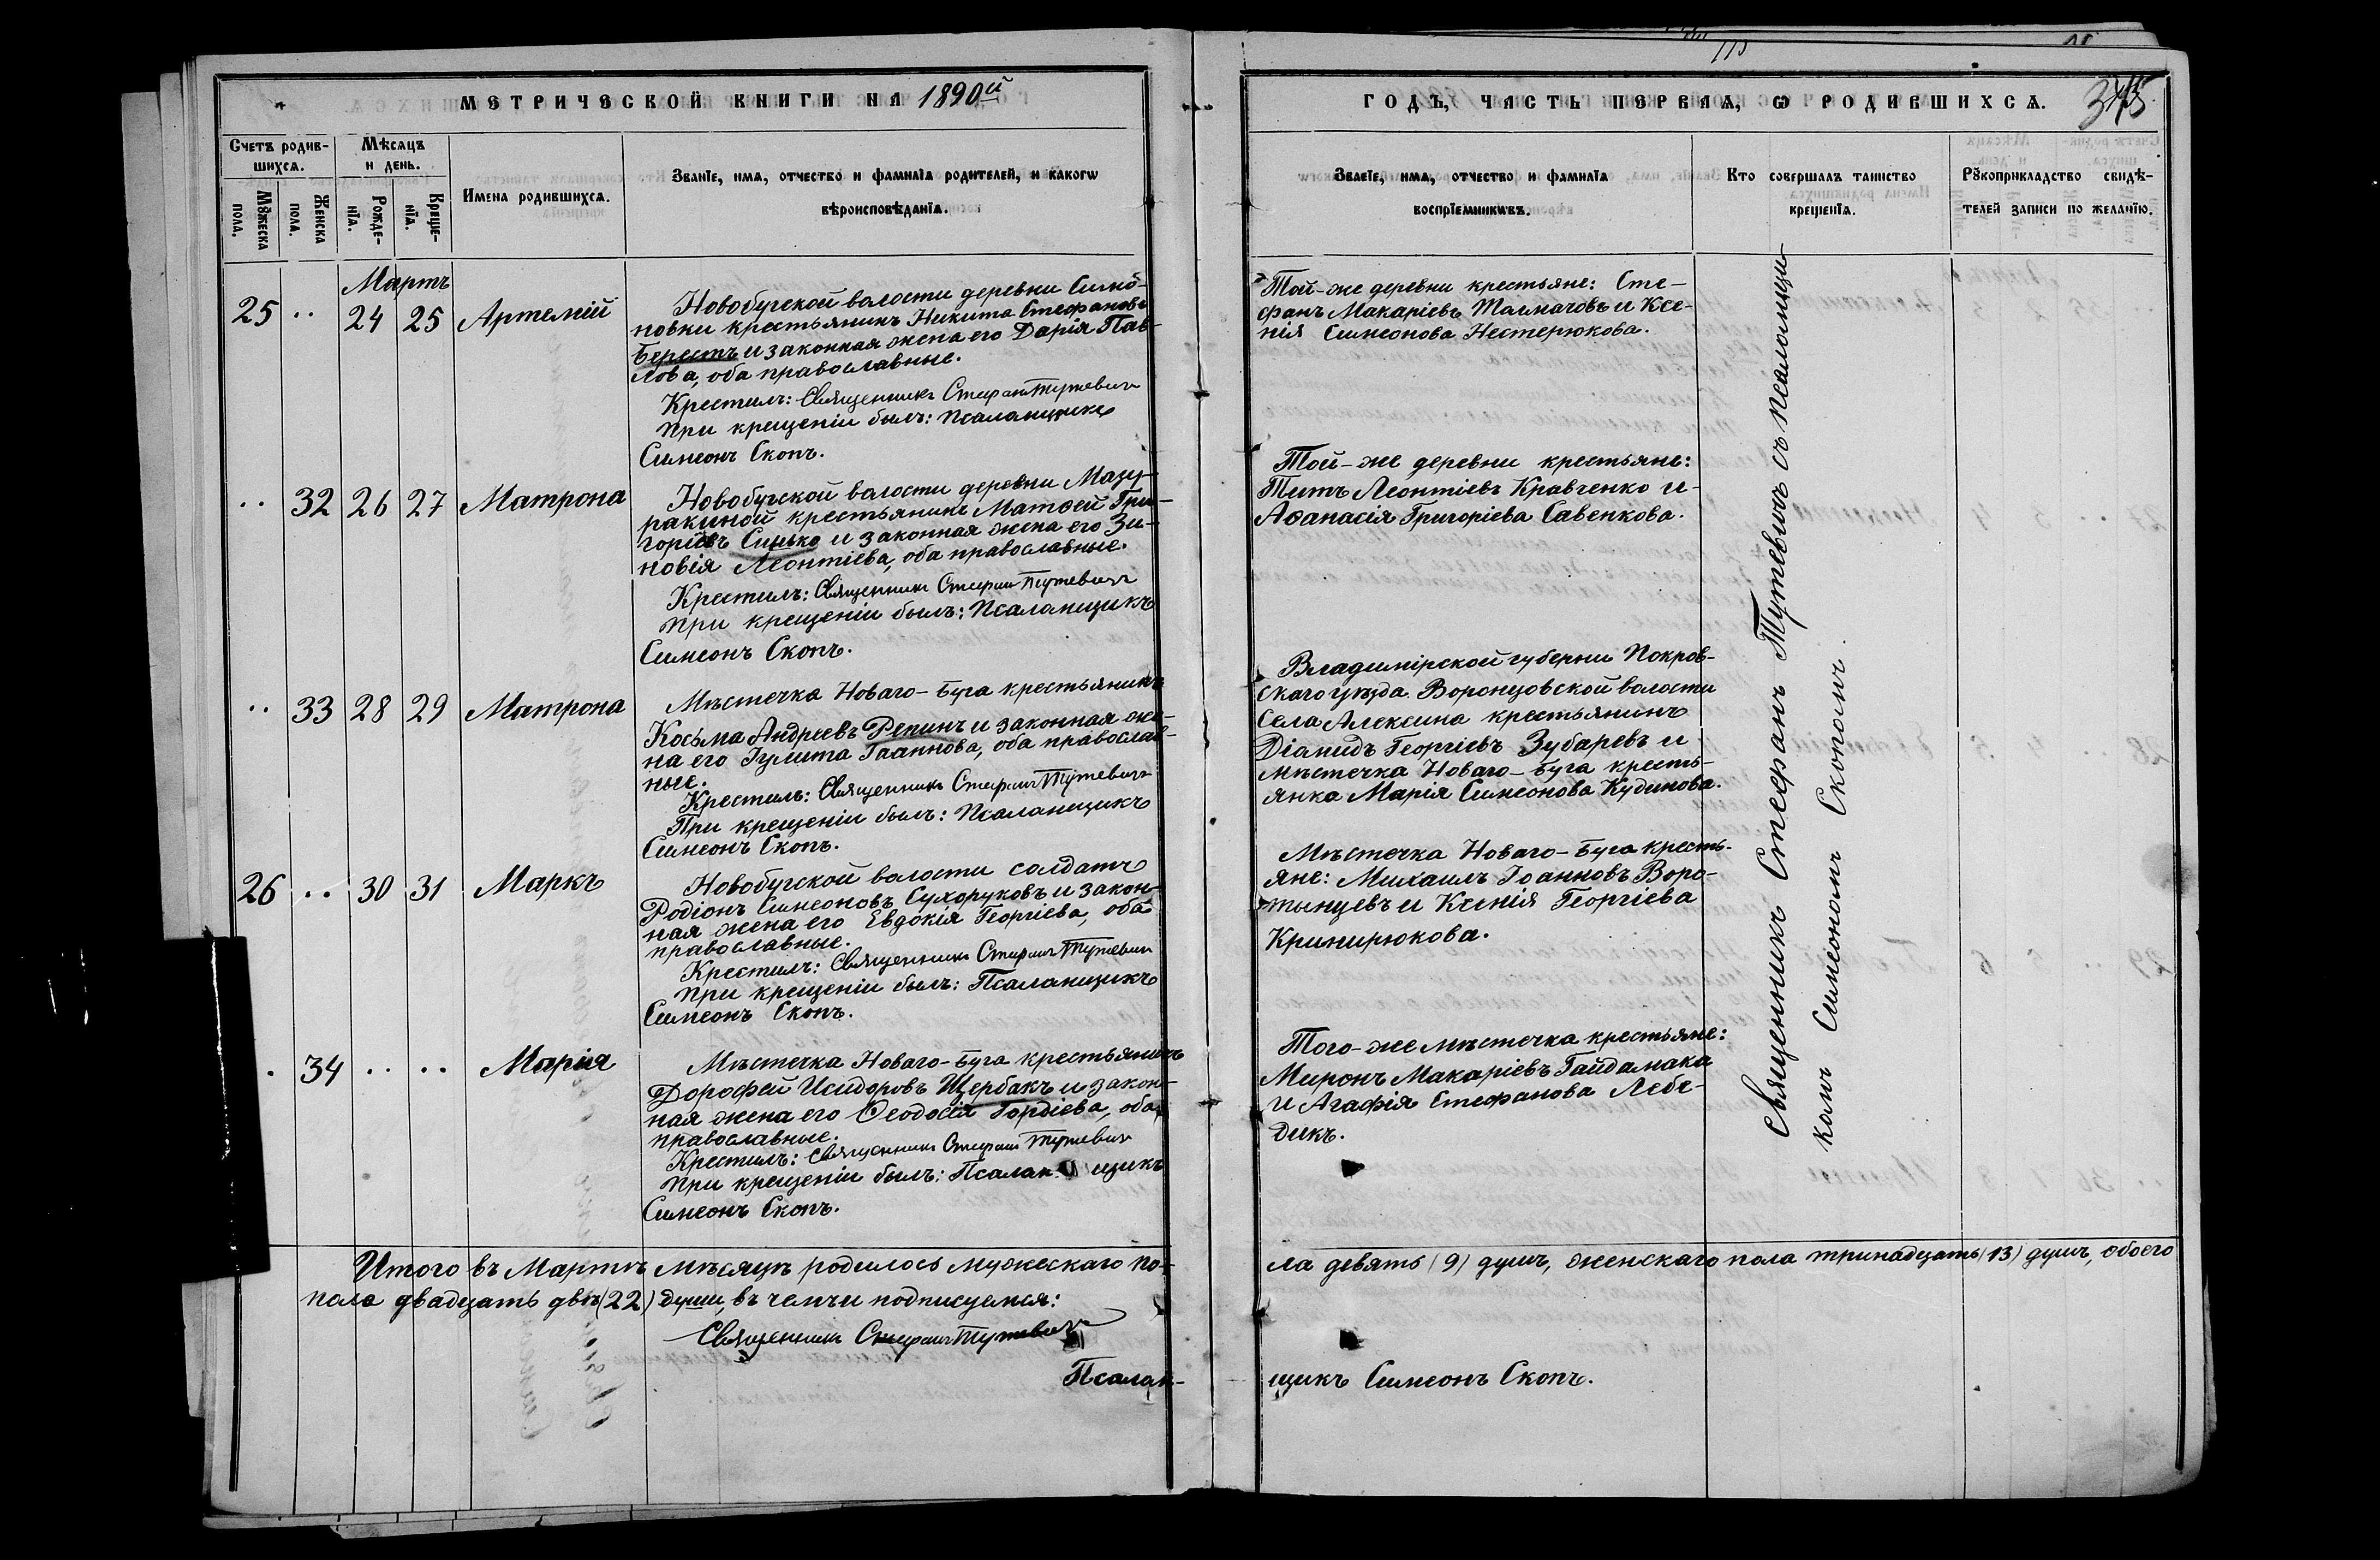 МЕТРИЧЕСКОЙ КНИГИ НА 1890й
ГОДЪ, ЧАСТЬ ПЕРВАЯ, Ѡ РОДИВШИХСѦ.
Счетъ родив-
шихсѧ.
Мѣсѧцъ
и день.
Мꙋжеска
пола.
Женска
пола.
Рожде-
нїѧ.
Креще-
нїѧ.
Имена родившихсѧ.
Званїе, имѧ, отчество и фамилїѧ родителей, и какогѡ
вѣроисповѣданїѧ.
Званїе, имѧ, отчество и фамилїѧ
воспрїемникѡвъ.
Кто совершалъ таинство
крещенїѧ.
Рꙋкоприкладство свидѣ-
телей записи по желанїю.
Мартъ
25 .. 24 25 Артемій
Новобугской волости деревни Симо-
новки крестьянинъ Никита Стефановъ
Берестъ и законная жена его Дарія Пав-
лова, оба православные.
Крестилъ: Священникъ Стефан Тутевич
при крещеніи былъ: Псаломщикъ
Симеонъ Скопъ.
Той-же деревни крестьяне: Сте-
фанъ Макаріевъ Толмачовъ и Ксе-
нія Симеонова Нестерюкова.
.. 32 26 27 Матрона
Новобугской волости деревни Мазу-
ракиной крестьянинъ Матѳей Гри-
горіевъ Синько и законная жена его Зи-
новія Леонтіева, оба православные.
Крестилъ: Священник Стефан Тутевич
при крещеніи былъ: Псаломщикъ
Симеонъ Скопъ.
Той-же деревни крестьяне:
Титъ Леонтіевъ Кравченко и-
Аѳанасія Григоріева Савенкова.
.. 33 28 29 Матрона
Мѣстечка Новаго-Буга крестьянинъ
Косьма Андреевъ Репинъ и законная же-
на его Іулита Іоаннова, оба православ-
ные.
Крестилъ: Священникъ Стефанъ Тутевич
При крещеніи былъ: Псаломщикъ
Симеонъ Скопъ.
Владимірской губерни Покров-
скаго уѣзда Воронцовской волости
села Алексина крестьянинъ
Діамидъ Георгіевъ Зубаревъ и
мѣстечка Новаго-Буга кресть-
янка Марія Симеонова Кудинова.
26 .. 30 31 Маркъ
Новобугской волости солдатъ
Родіонъ Симеоновъ Сухоруковъ и закон-
ная жена его Евдокія Георгіева, оба
православные.
Крестилъ: Священникъ Стефанъ Тутевич
при крещеніи былъ: Псаломщикъ
Симеонъ Скопъ.
Мѣстечка Новаго-Буга кресть-
яне: Михаилъ Іоанновъ Воро-
тынцевъ и Ксенія Георгіева
Кринирюкова.
. 34 .. .. Марія
Мѣстечка Новаго-Буга крестьянинъ
Дорофей Исидоровъ Щербакъ и закон-
ная жена его Ѳеодосія Гордіева, оба
православные.
Крестилъ: Священникъ Стефан Тутевич
при крещеніи былъ: Псаломщикъ
Симеонъ Скопъ.
Того-же мѣстечка крестьяне:
Миронъ Макаріевъ Гайдамака
и Агафія Стефанова Лебе-
дикъ.
Священникъ Стефанъ Тутевичъ съ псаломщи-
комъ Симеономъ Скопомъ.
Итого въ Мартѣ мѣсяцѣ родилось мужескаго по-
ла девять (9) душъ, женскаго пола тринадцать (13) душъ, обоего
пола двадцать двѣ (22) души, въ чемъ и подписуемся:
Священникъ Стефанъ Тутевич
Псалом-
щикъ Симеонъ Скопъ.